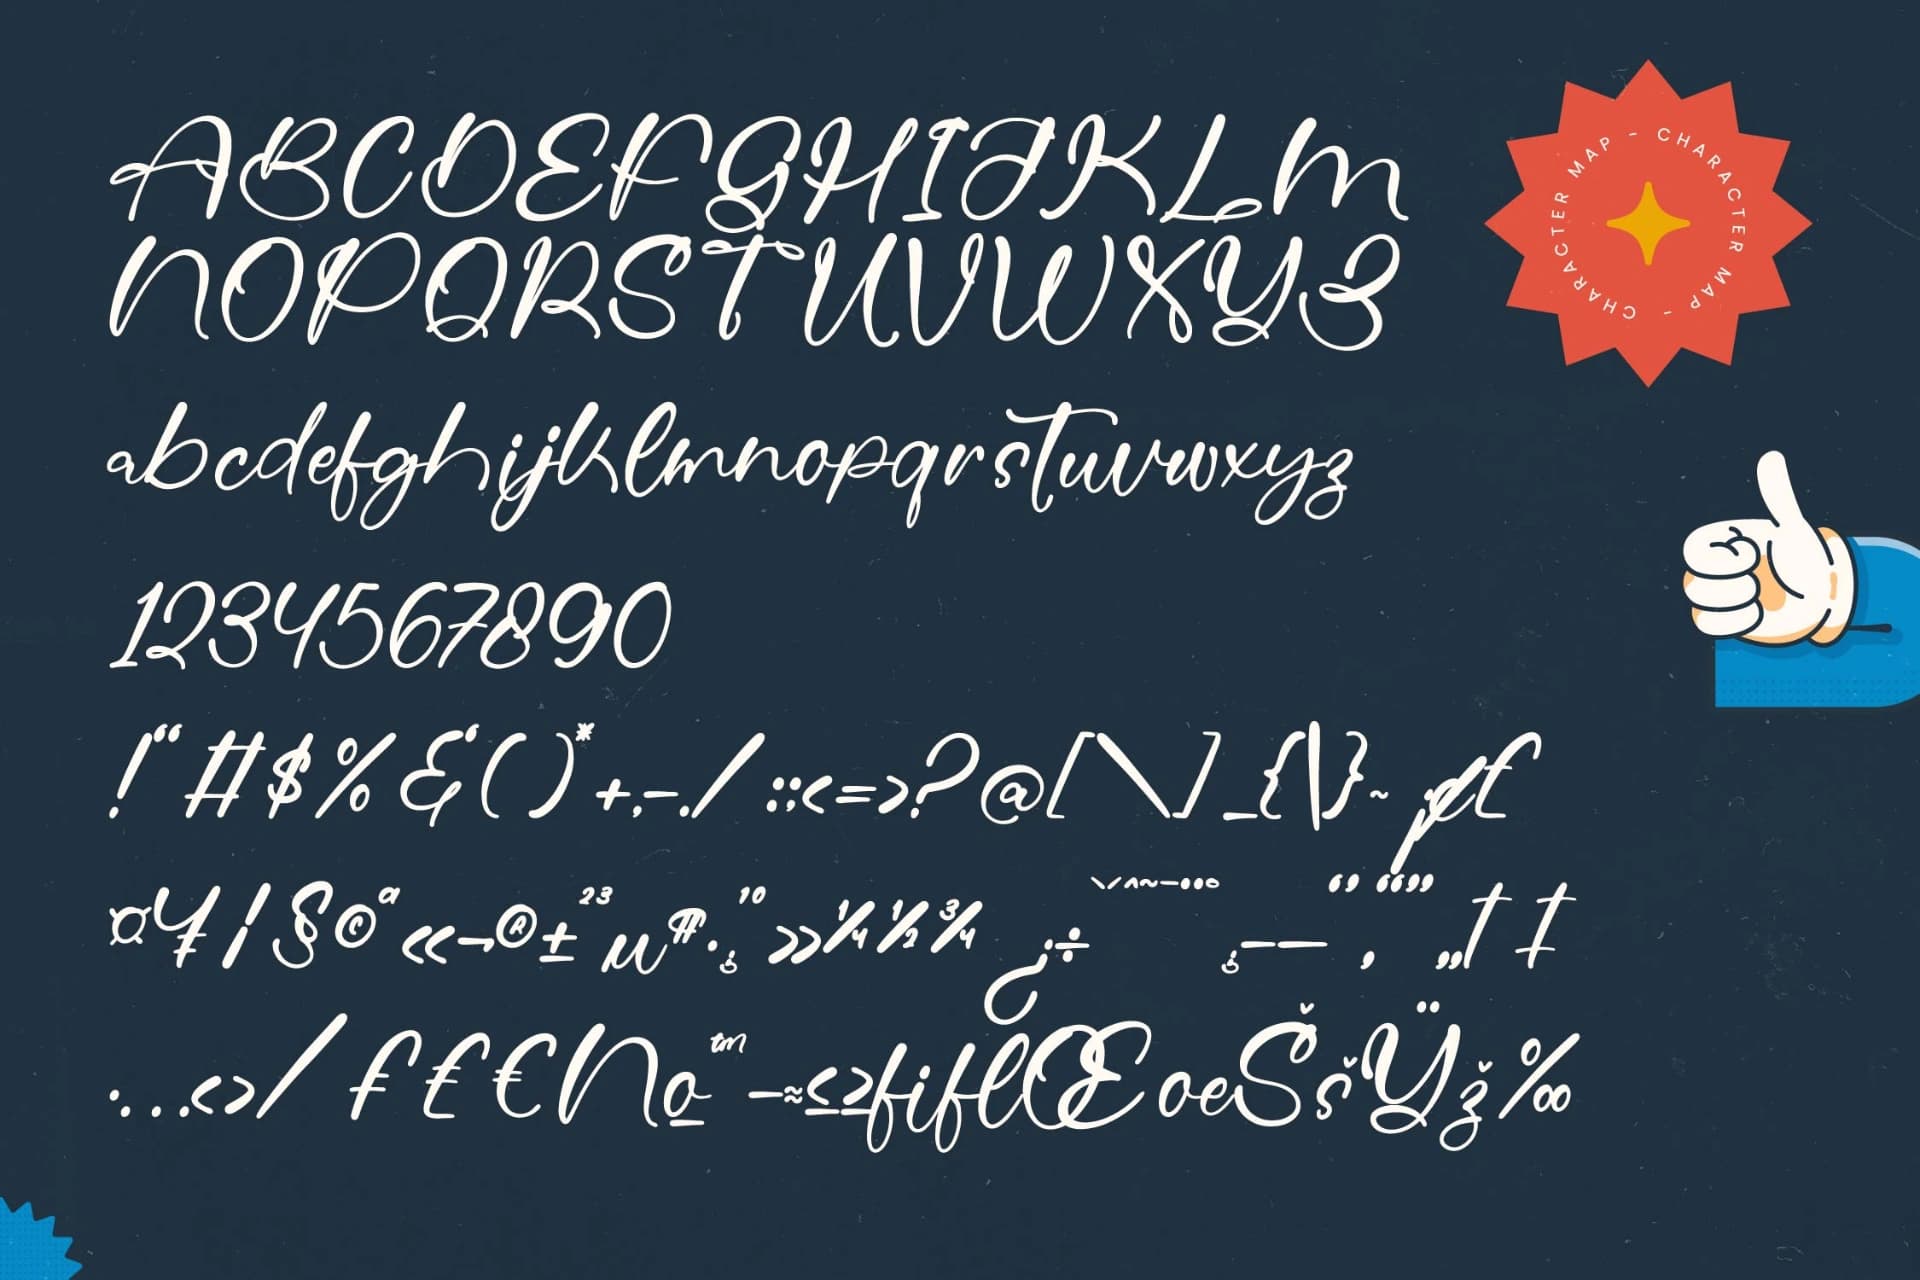 ABCDEFGHIJKLM
NOPQRSTUVWXYZ
abcdefghijklmnopqrstuvwxyz
1234567890
!"#$%&'()*+,-./:;<=>?@[\]_{|}~¡¢£
¤¥¦§©ª«¬®±²³µ¶·¸¹º»¼½¾¿÷–—‚“”„†‡
•…‹›⁄₣₤€№™−≈≤≥fiflŒœŠšŸž‰
CHARACTER MAP - CHARACTER MAP -